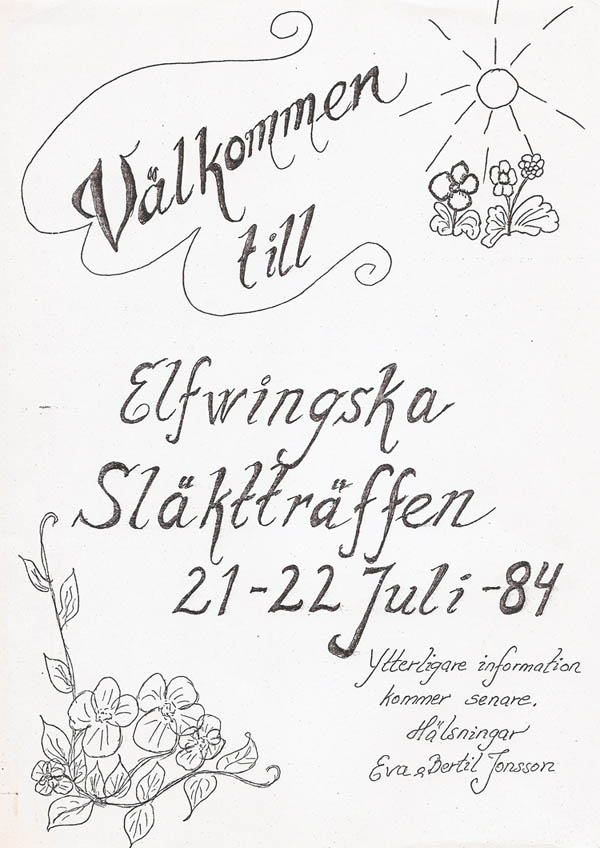 Välkommen
till
Elfwingska
Släktträffen
21-22 Juli -84
Ytterligare information
kommer senare.
Hälsningar
Eva & Bertil Jonsson